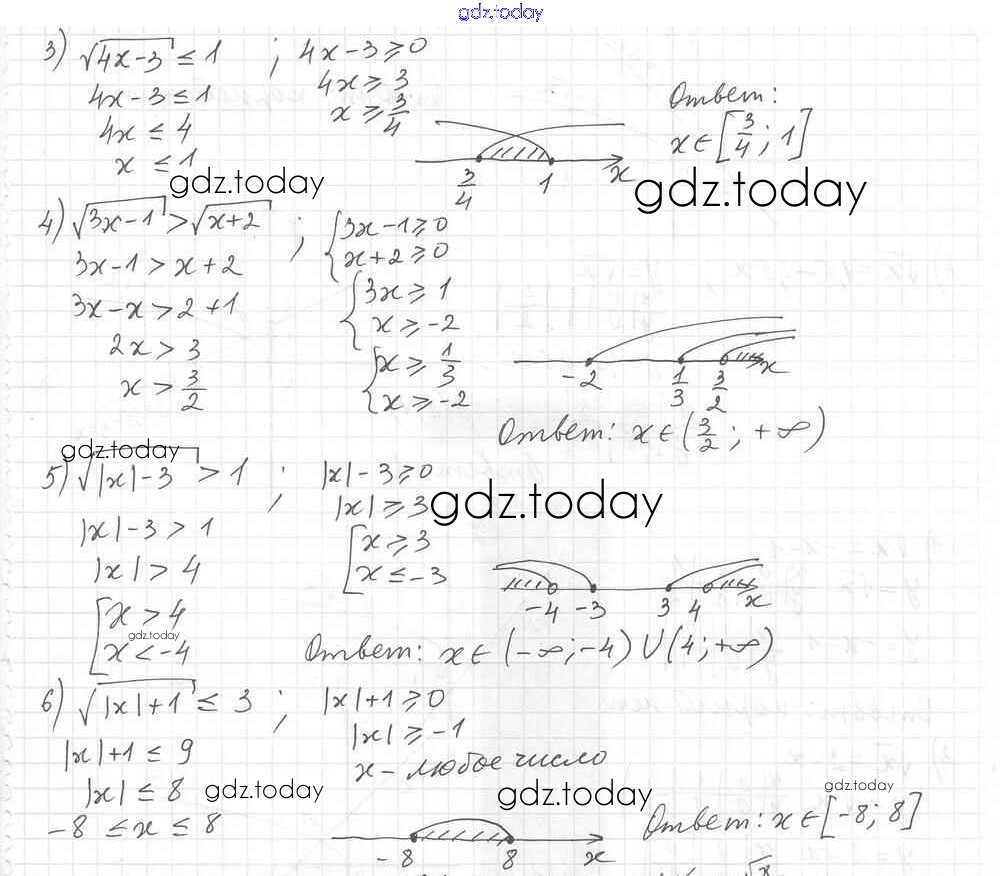 gdz.today
3) √(4x-3) ≤ 1 ; 4x-3 ≥ 0
4x-3 ≤ 1
4x ≥ 3
4x ≤ 4
x ≥ 3/4
x ≤ 1
3/4 1 x
Ответ:
x ∈ [3/4; 1]
gdz.today
gdz.today
4) √(3x-1) > √(x+2) ; { 3x-1 ≥ 0
x+2 ≥ 0
3x-1 > x+2
3x-x > 2+1
2x > 3
x > 3/2
{ 3x ≥ 1
x ≥ -2
{ x ≥ 1/3
x ≥ -2
-2 1/3 3/2 x
Ответ: x ∈ (3/2; +∞)
gdz.today
5) √(|x|-3) > 1 ; |x|-3 ≥ 0
|x|-3 > 1
|x| > 4
[ x > 4
x < -4
gdz.today
|x| ≥ 3
[ x ≥ 3
x ≤ -3
gdz.today
-4 -3 3 4 x
Ответ: x ∈ (-∞; -4) ∪ (4; +∞)
6) √(|x|+1) ≤ 3 ; |x|+1 ≥ 0
|x|+1 ≤ 9
|x| ≤ 8
-8 ≤ x ≤ 8
|x| ≥ -1
x - любое число
gdz.today
gdz.today
gdz.today
-8 8 x
Ответ: x ∈ [-8; 8]